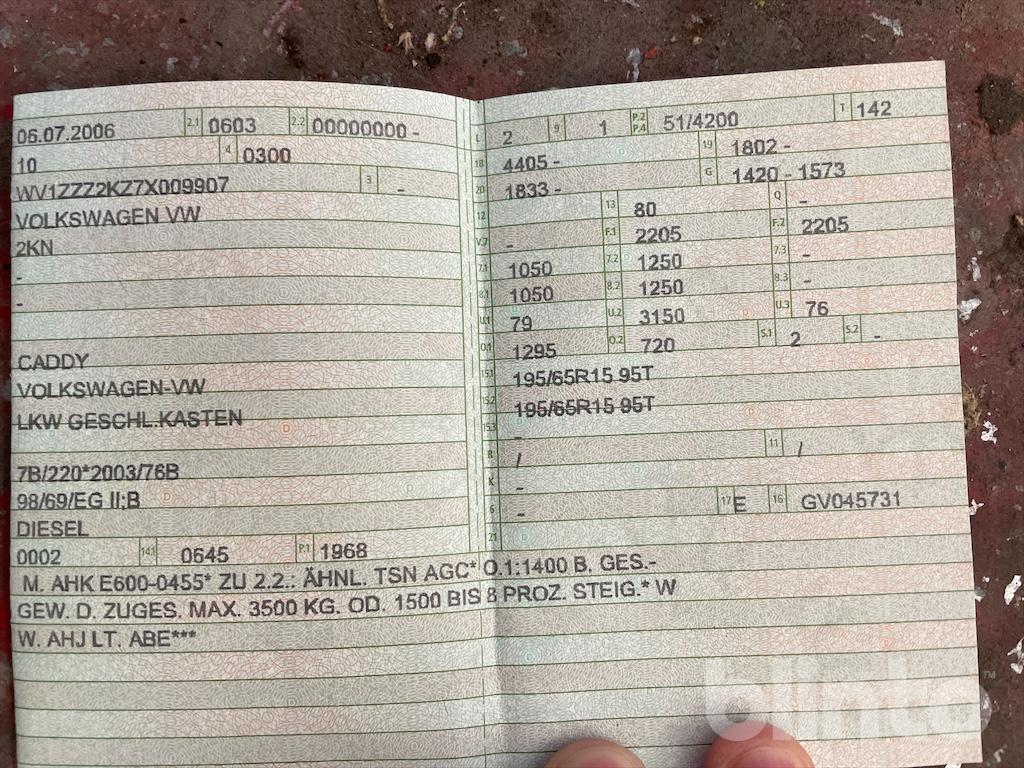 06.07.2006 2.1 0603 2.2 00000000 -
10 4 0300
WV1ZZZ2KZ7X009907 3 -
VOLKSWAGEN VW
2KN
-
-
CADDY
VOLKSWAGEN-VW
LKW GESCHL.KASTEN
7B/220*2003/76B
98/69/EG II;B
DIESEL
0002 14.1 0645 P.1 1968
L 2 9 1 P.2 P.4 51/4200 T 142
18 4405 - 19 1802 -
20 1833 - G 1420 - 1573
12 13 80 Q -
V.7 - F.1 2205 F.2 2205
7.1 1050 7.2 1250 7.3 -
8.1 1050 8.2 1250 8.3 -
U.1 79 U.2 3150 U.3 76
O.1 1295 O.2 720 S.1 2 S.2 -
15.1 195/65R15 95T
15.2 195/65R15 95T
15.3 -
R / 11 /
K -
6 - 17 E 16 GV045731
21
M. AHK E600-0455* ZU 2.2.: ÄHNL. TSN AGC* O.1:1400 B. GES.-
GEW. D. ZUGES. MAX. 3500 KG. OD. 1500 BIS 8 PROZ. STEIG.* W
W. AHJ LT. ABE***
blinto™